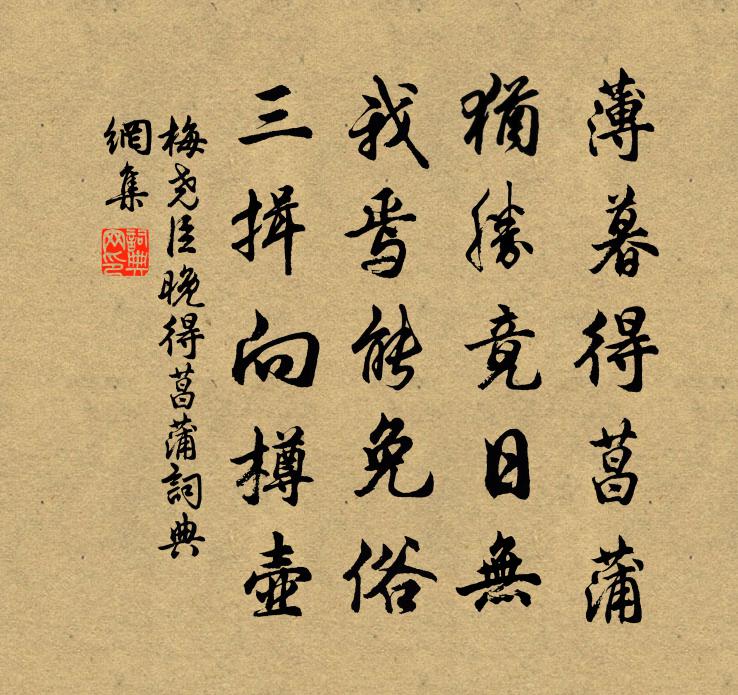 薄暮得菖蒲
猶勝竟日無
我焉能免俗
三揖向樽壺
梅尧臣晚得菖蒲詞典
網集
詞典網印